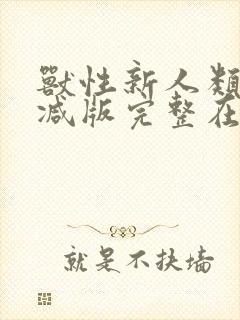 獸性新人類
減版完整在
就是不扶墙